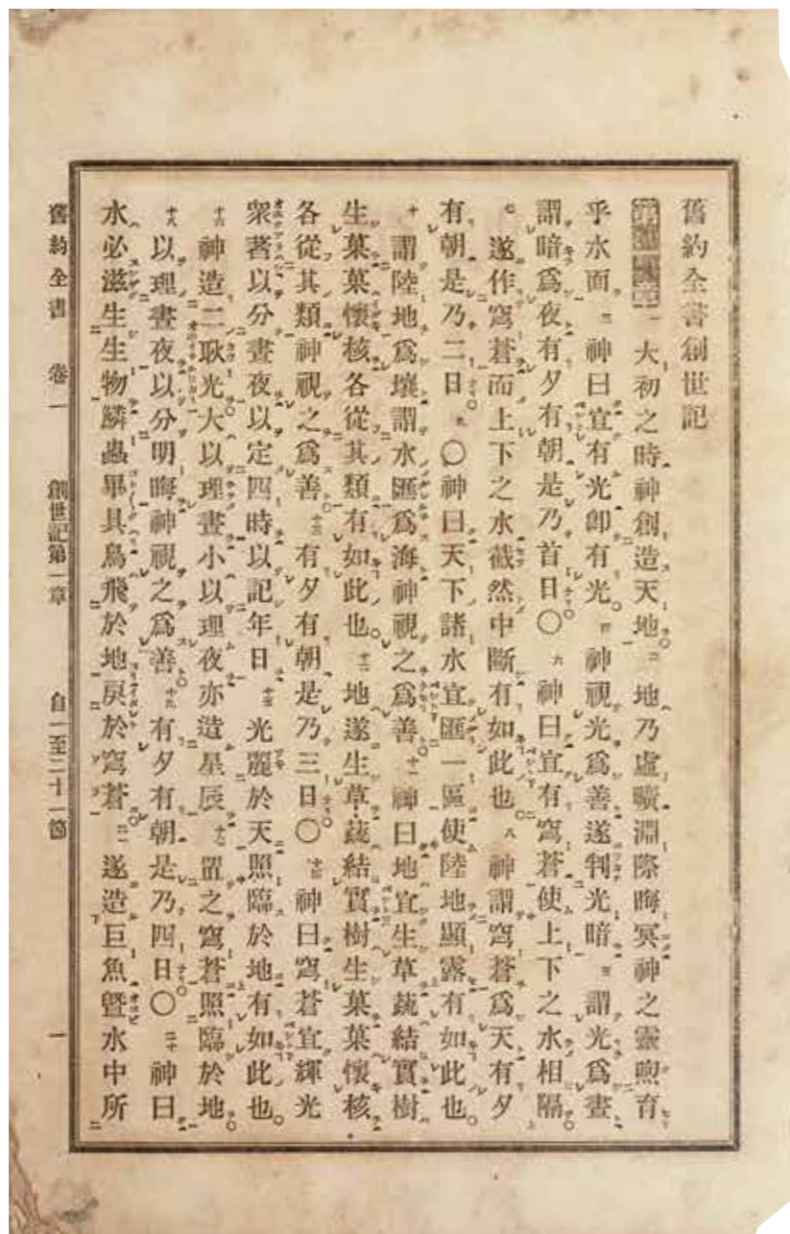 舊約全書創世記
一 大初之時神創造天地。二 地乃虛曠淵際晦冥神之靈煦育
乎水面 三 神曰宜有光卽有光。四 神視光爲善遂判光暗 五 謂光爲晝
謂暗爲夜有夕有朝是乃首日〇 六 神曰宜有穹蒼使上下之水相隔。
七 遂作穹蒼而上下之水截然中斷有如此也。八 神謂穹蒼爲天有夕
有朝是乃二日。九 〇神曰天下諸水宜匯一區使陸地顯露有如此也。
十 謂陸地爲壤謂水匯爲海神視之爲善。十一 神曰地宜生草蔬結實樹
生菓菓懷核各從其類有如此也。十二 地遂生草蔬結實樹生菓菓懷核
各從其類神視之爲善 十三 有夕有朝是乃三日〇 十四 神曰穹蒼宜輝光
衆著以分晝夜以定四時以記年日 十五 光麗於天照臨於地有如此也。
十六 神造二耿光大以理晝小以理夜亦造星辰 十七 置之穹蒼照臨於地
十八 以理晝夜以分明晦神視之爲善。十九 有夕有朝是乃四日〇 二十 神曰
水必滋生生物鱗蟲畢具鳥飛於地戾於穹蒼。二一 遂造巨魚曁水中所
舊約全書 卷一 創世記第一章 自一至二十一節 一